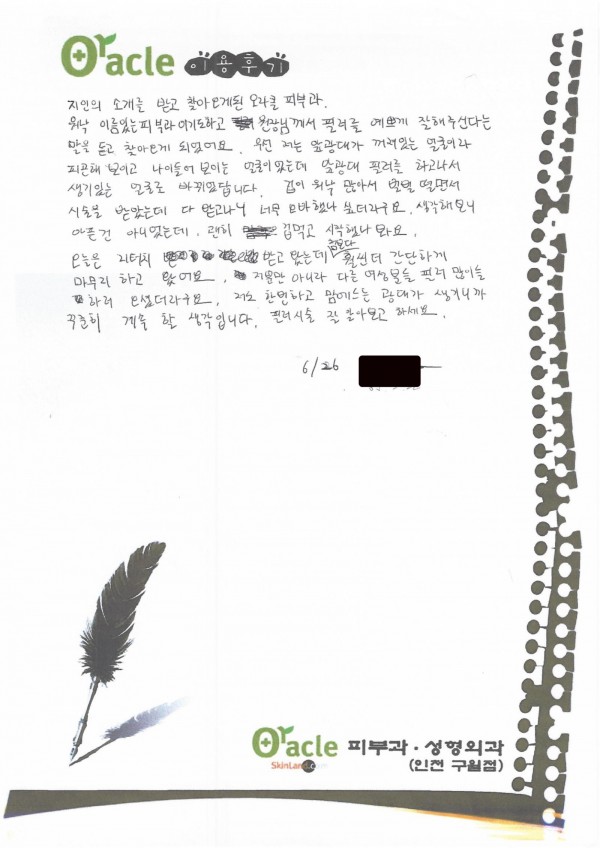 Oracle 이용후기
지인의 소개를 받고 찾아오게된 오라클 피부과.
워낙 이름있는 피부과이기도하고 원장님께서 필러를 예쁘게 잘해주신다는
말을 듣고 찾아오게 되었어요. 우선 저는 앞광대가 꺼져있는 얼굴이라
피곤해 보이고 나이들어 보이는 얼굴이었는데 앞광대 필러를 하고나서
생기있는 얼굴로 바뀌었답니다. 겁이 워낙 많아서 벌벌 떨면서
시술을 받았는데 다 받고나니 너무 오바했나 싶더라구요. 생각해보니
아픈건 아니었는데, 괜히 겁먹고 시작했나 봐요.
오늘은 리터치 받고 왔는데 처음보다 훨씬더 간단하게
마무리 하고 왔어요. 저뿐만 아니라 다른 여성분들 필러 많이들
하러 오셨더라구요. 저도 한번하고 맘에드는 광대가 생기니까
꾸준히 계속 할 생각입니다. 필러시술 잘 알아보고 하세요.
6/26
Oracle 피부과·성형외과
SkinLand.com (인천 구월점)